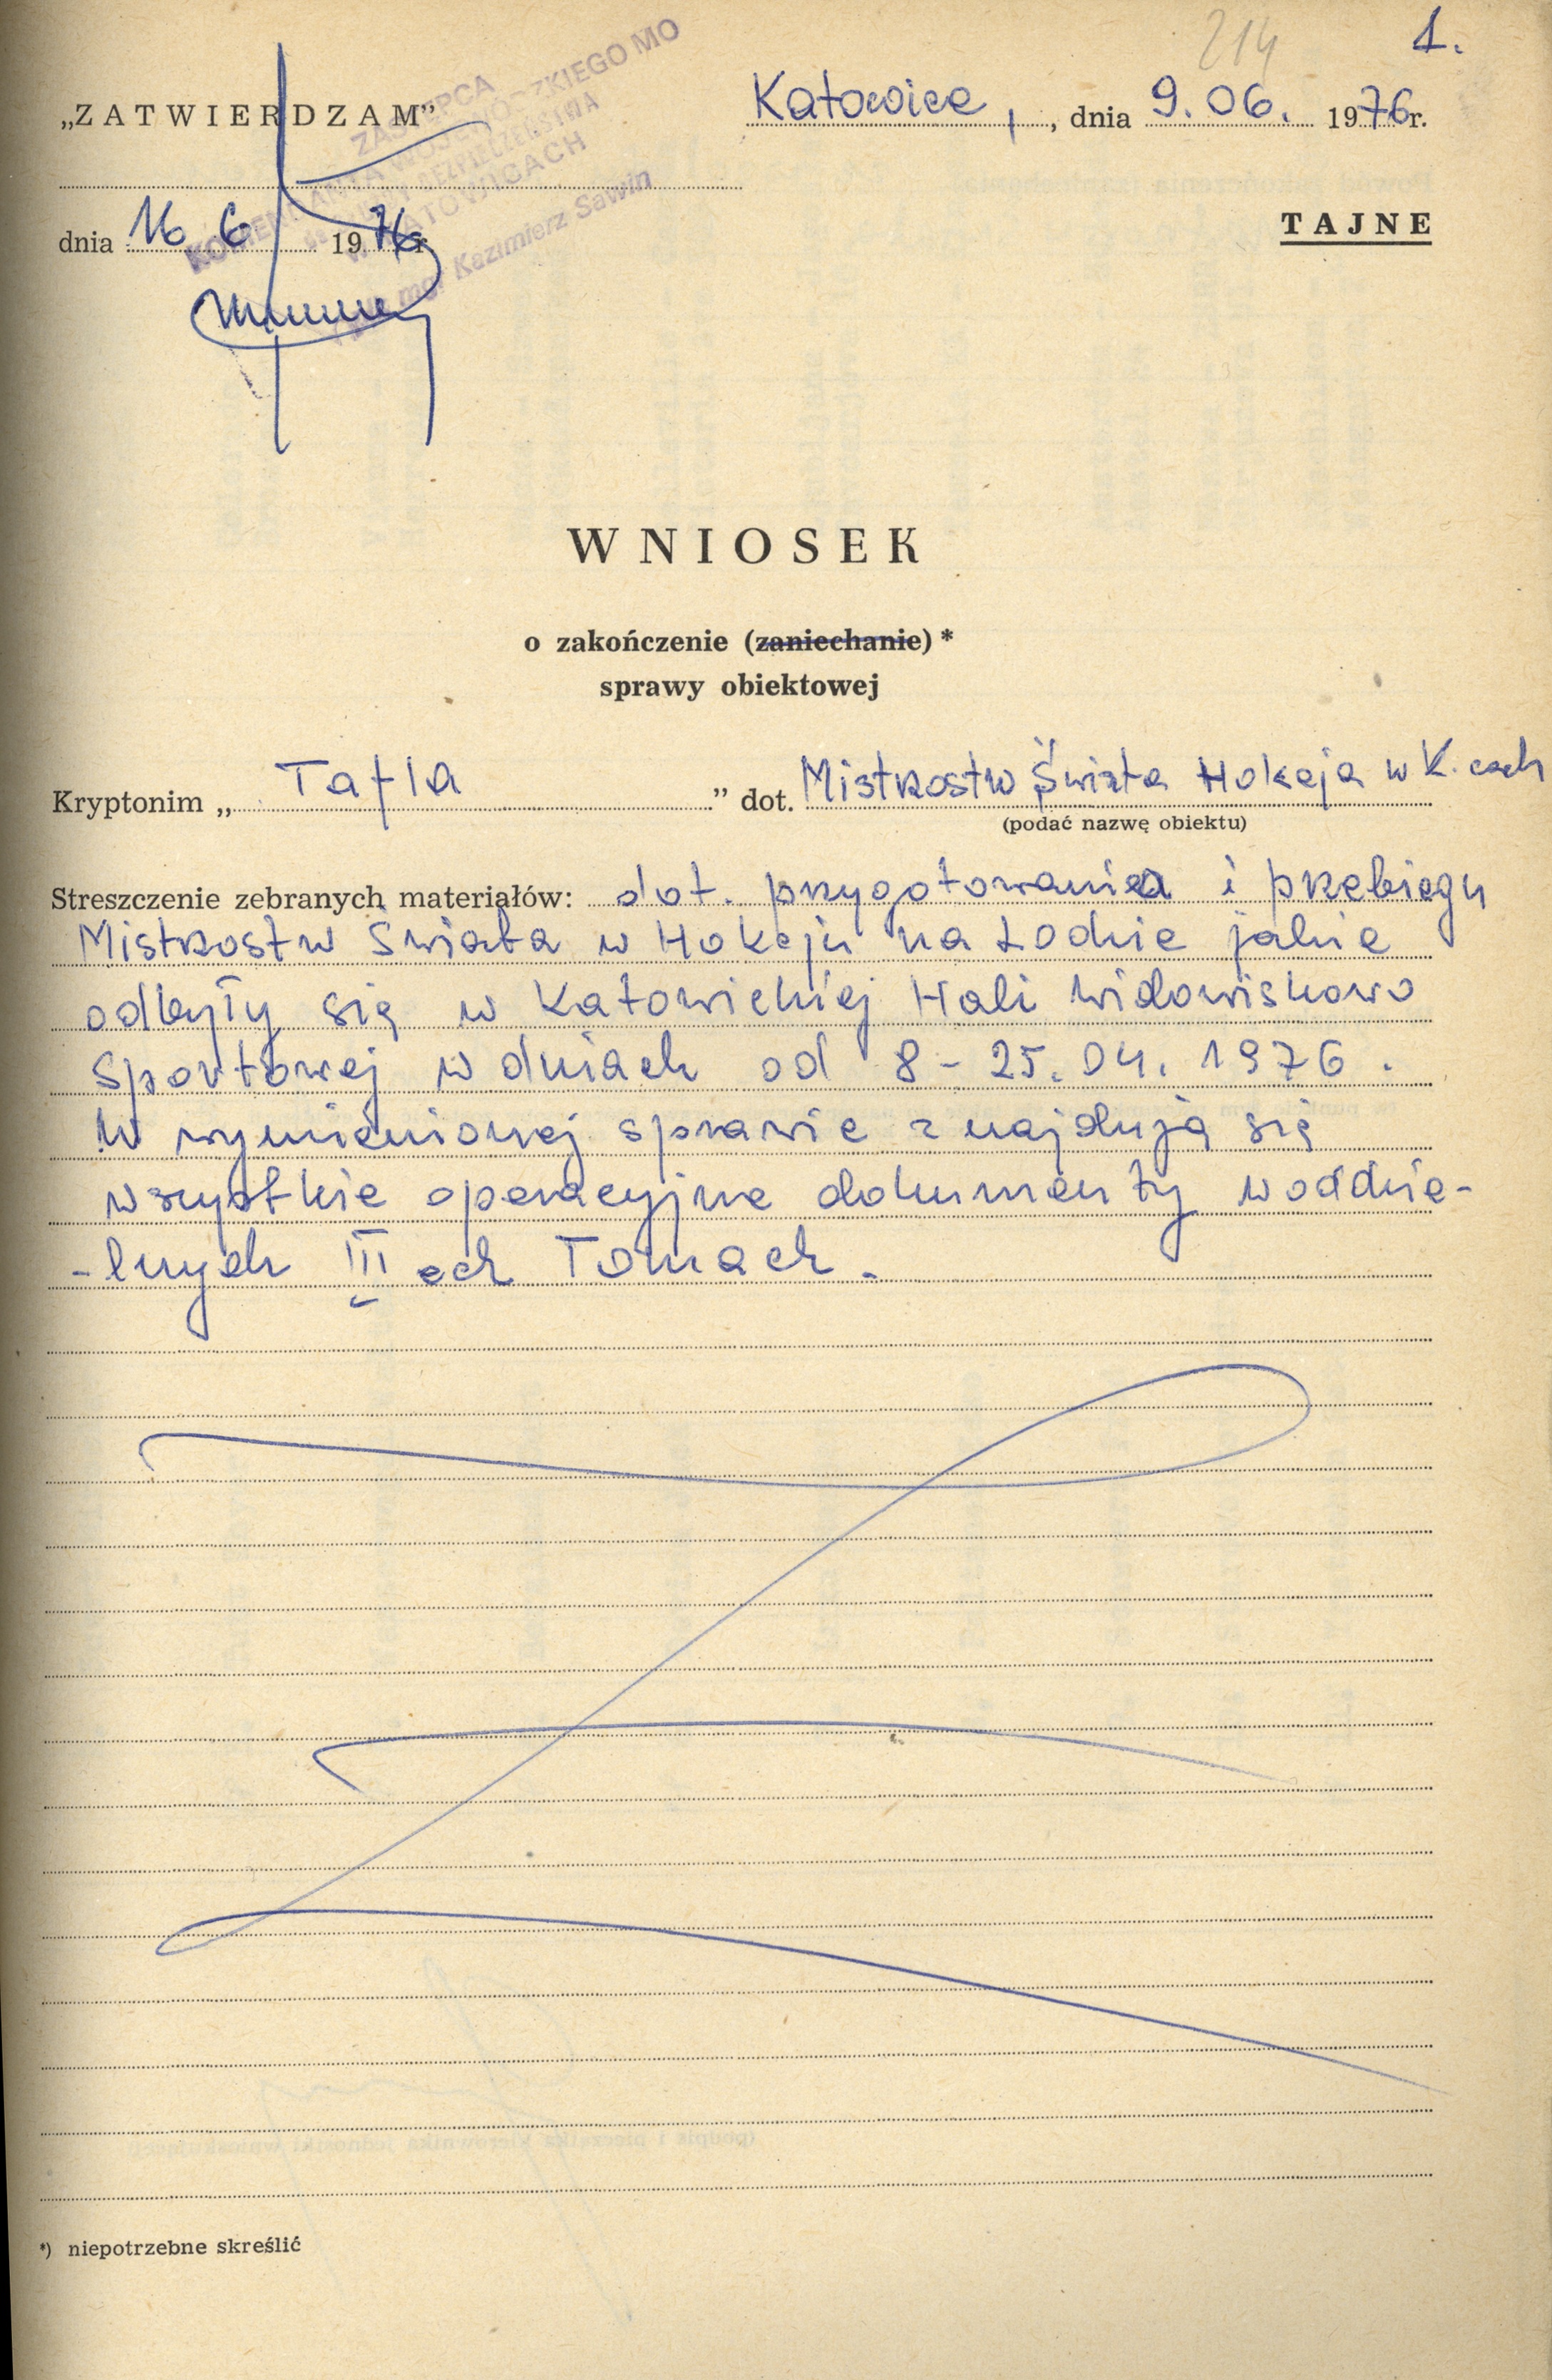 214 1.
„ZATWIERDZAM”
Katowice, , dnia 9.06. 1976r.
ZASTĘPCA
KOMENDANTA WOJEWÓDZKIEGO MO
BEZPIECZEŃSTWA
W KATOWICACH
mgr Kazimierz Sawin
dnia 16 6 1976r
TAJNE
WNIOSEK
o zakończenie (zaniechanie) *
sprawy obiektowej
Kryptonim „ Tafla ” dot. Mistrzostw Świata Hokeja w K. cach
(podać nazwę obiektu)
Streszczenie zebranych materiałów: dot. przygotowania i przebiegu
Mistrzostw Świata w Hokeju na Lodzie jakie
odbyły się w Katowickiej Hali widowiskowo
Sportowej w dniach od 8 - 25.04.1976.
W wymienionej sprawie znajdują się
wszystkie operacyjne dokumenty w oddzie-
-lnych III ech Tomach.
*) niepotrzebne skreślić